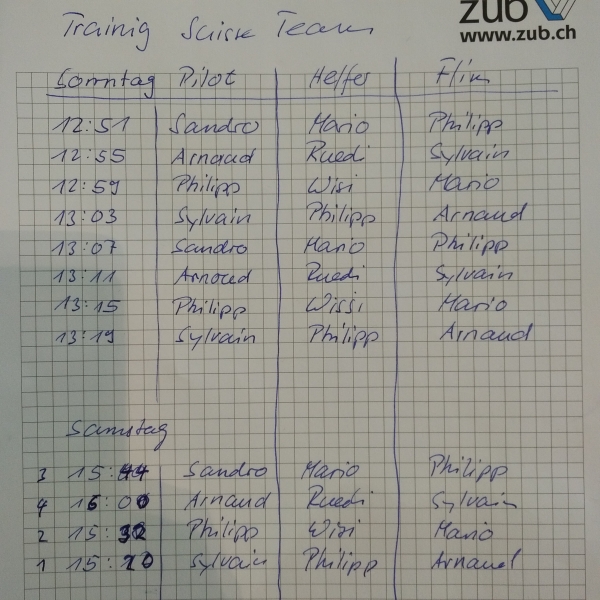 zub
www.zub.ch
Trainig Suisse Team
Sonntag Pilot Helfer Film
12:51 Sandro Mario Philipp
12:55 Arnaud Ruedi Sylvain
12:59 Philipp Wisi Mario
13:03 Sylvain Philipp Arnaud
13:07 Sandro Mario Philipp
13:11 Arnoud Ruedi Sylvain
13:15 Philipp Wissi Mario
13:19 Sylvain Philipp Arnaud
Samstag
3 15:44 Sandro Mario Philipp
4 16:00 Arnaud Ruedi Sylvain
2 Philipp Wisi Mario
1 Sylvain Philipp Arnaud